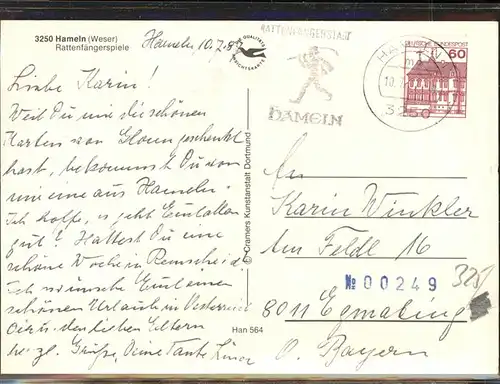 3250 Hameln (Weser)
Rattenfängerspiele
Hameln, 10.7.
Liebe Karin!
Weil Du mir die schönen
Karten von geschenkt
hast, bekommst Du von
mir eine aus Hameln.
Ich hoffe, es geht Euch allen
gut? Hattest Du eine
schöne Woche in Remscheid
Ich wünsche Euch einen
schönen Urlaub in Österreich
den lieben Eltern
herzl. Grüße, Deine Tante
© Cramers Kunstanstalt Dortmund
Han 564
RATTENFÄNGERSTADT
HAMELN
3250
DEUTSCHE BUNDESPOST
60
An
Karin Winkler
Am Feldl 16
№ 00249
8011 Egmating
O. Bayern